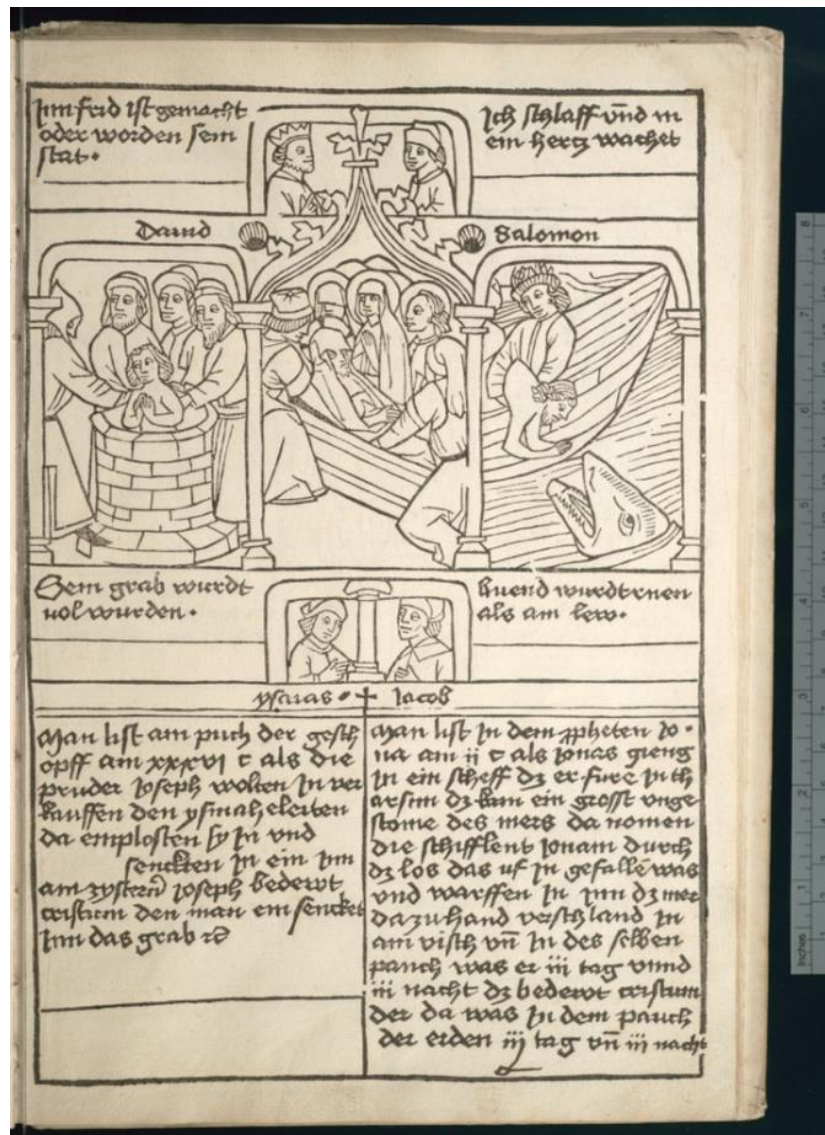 Inn frid ist gemacht
oder worden sein
stat.
Ich schlaff vnd m
ein hertz wachet
Dauid
Salomon
Sein grab wurdt
uol wurden.
als am lew.
ysaias
Jacob
Man list am puch der gesch
opff am xxxvi c als die
pruder Joseph wolten In ver
kauffen den ysmaheleiten
da emplosten sy In vnd
senckten In ein Inn
am zystern Joseph bedewt
cristum den man ein sencket
Inn das grab
Man list In dem ppheten Jo
na am ii c als Jonas gieng
In ein scheff dz er fure In th
arsim dz kam ein grosse vnge
stome des mers da nomen
die schifflent Jonam durch
dz los das uf In gefallē was
vnd warffen In Inn dz mer
da zu hand verschland In
am visch vn̄ In des selben
pauch was er iii tag vnnd
iii nacht dz bedewt cristum
der da was In dem pauch
der erden iij tag vn̄ iii nacht
Inches